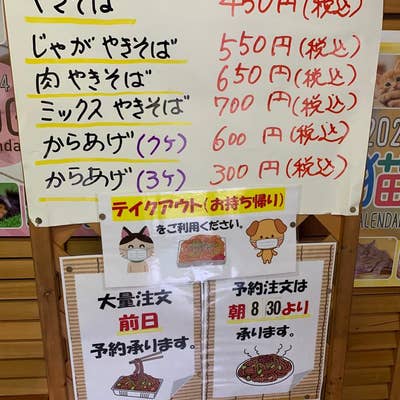 やきそば 450円(税込)
じゃがやきそば 550円(税込)
肉やきそば 650円(税込)
ミックスやきそば 700円(税込)
からあげ(7ケ) 600円(税込)
からあげ(3ケ) 300円(税込)
テイクアウト(お持ち帰り)
をご利用ください。
大量注文
前日
予約承ります。
予約注文は
朝8:30より
承ります。
202
猫
CALENDAR